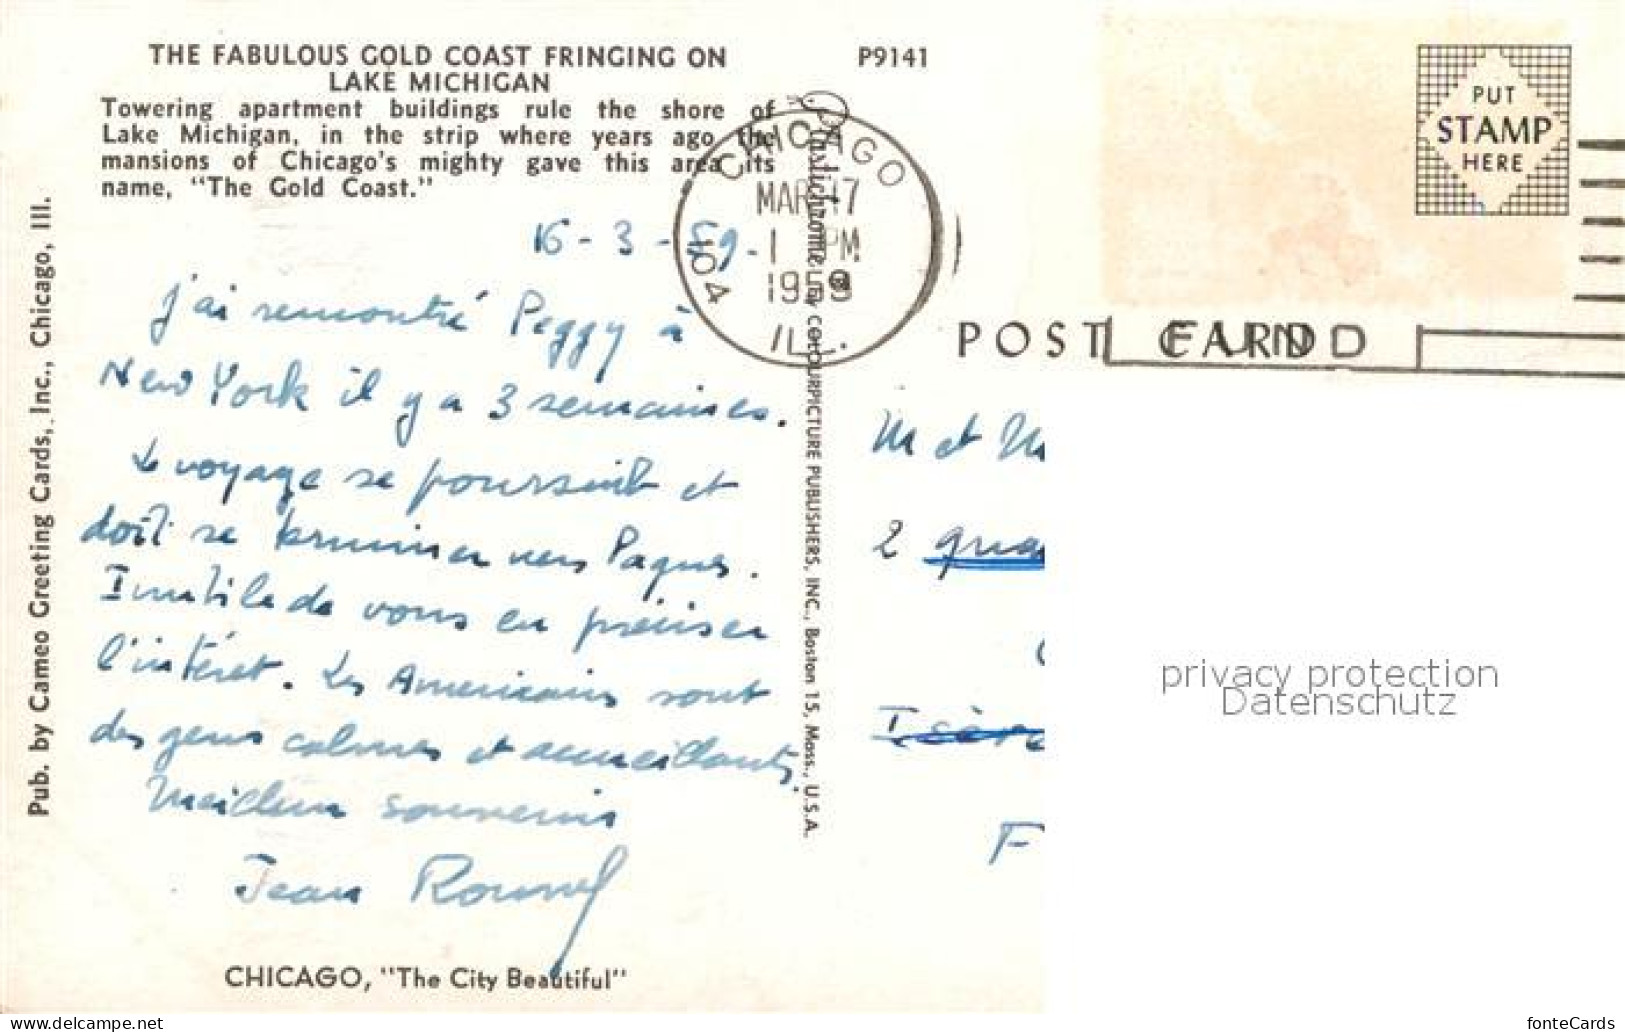 THE FABULOUS GOLD COAST FRINGING ON
LAKE MICHIGAN
P9141
Towering apartment buildings rule the shore of
Lake Michigan, in the strip where years ago the
mansions of Chicago's mighty gave this area its
name, "The Gold Coast."
Pub. by Cameo Greeting Cards, Inc., Chicago, Ill.
16-3-59.
J'ai remontré Peggy à
New York il y a 3 semaines.
Le voyage se poursuit et
doit se terminer vers Paques.
Inutile de vous en préciser
l'intéret. Les Americains sont
des gens calmes et accueillants.
Meilleurs souvenirs
Jean
CHICAGO, "The City Beautiful"
CHICAGO
MAR 17
1 PM
1959
ILL.
104
Plastichrome
COLOURPICTURE PUBLISHERS, INC., Boston 15, Mass., U.S.A.
PUT
STAMP
HERE
POST CARD
FUND
M et M
2 qua
Isère
F
privacy protection
Datenschutz
www.delcampe.net
fonteCards